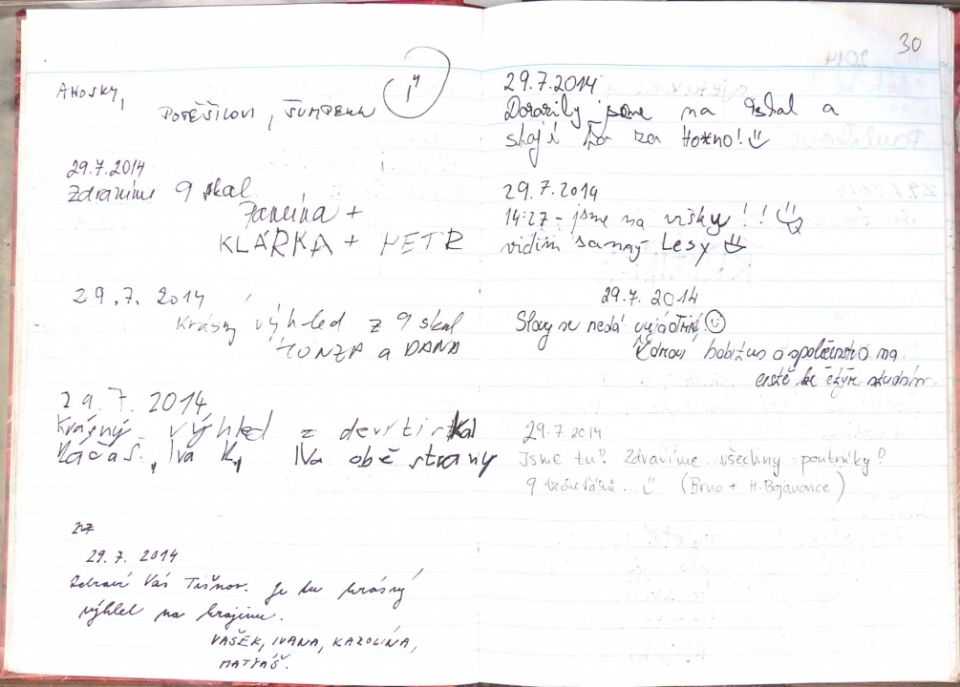 AHOSKY,
POTĚŠILOVI, ŠUMPERK
29.7.2014
Zdravíme 9 skal
Pavlína +
KLÁRKA + PETR
29.7. 2014
Krásný výhled z 9 skal
HONZA a DANA
29.7. 2014
Krásný výhled z devítiskal
Iva K., Na obě strany
29.7. 2014
Zdraví Vás Tišnov. Je tu krásný
výhled na krajinu.
VAŠEK, IVANA, KAROLÍNA,
MATYÁŠ.
30
29.7.2014
Dorazily jsme na 9skal a
stojí to za to
29.7.2014
14:27 - jsme na vršku!!
vidím samný Lesy
29.7. 2014
Slovy se nedá vyjádřit!
Zdraví hobitus a společenstvo na
cestě ke čtyř studním.
29.7 2014
Jsme tu? Zdravíme všechny poutníky?
9 (Brno + H. Bojanovice)